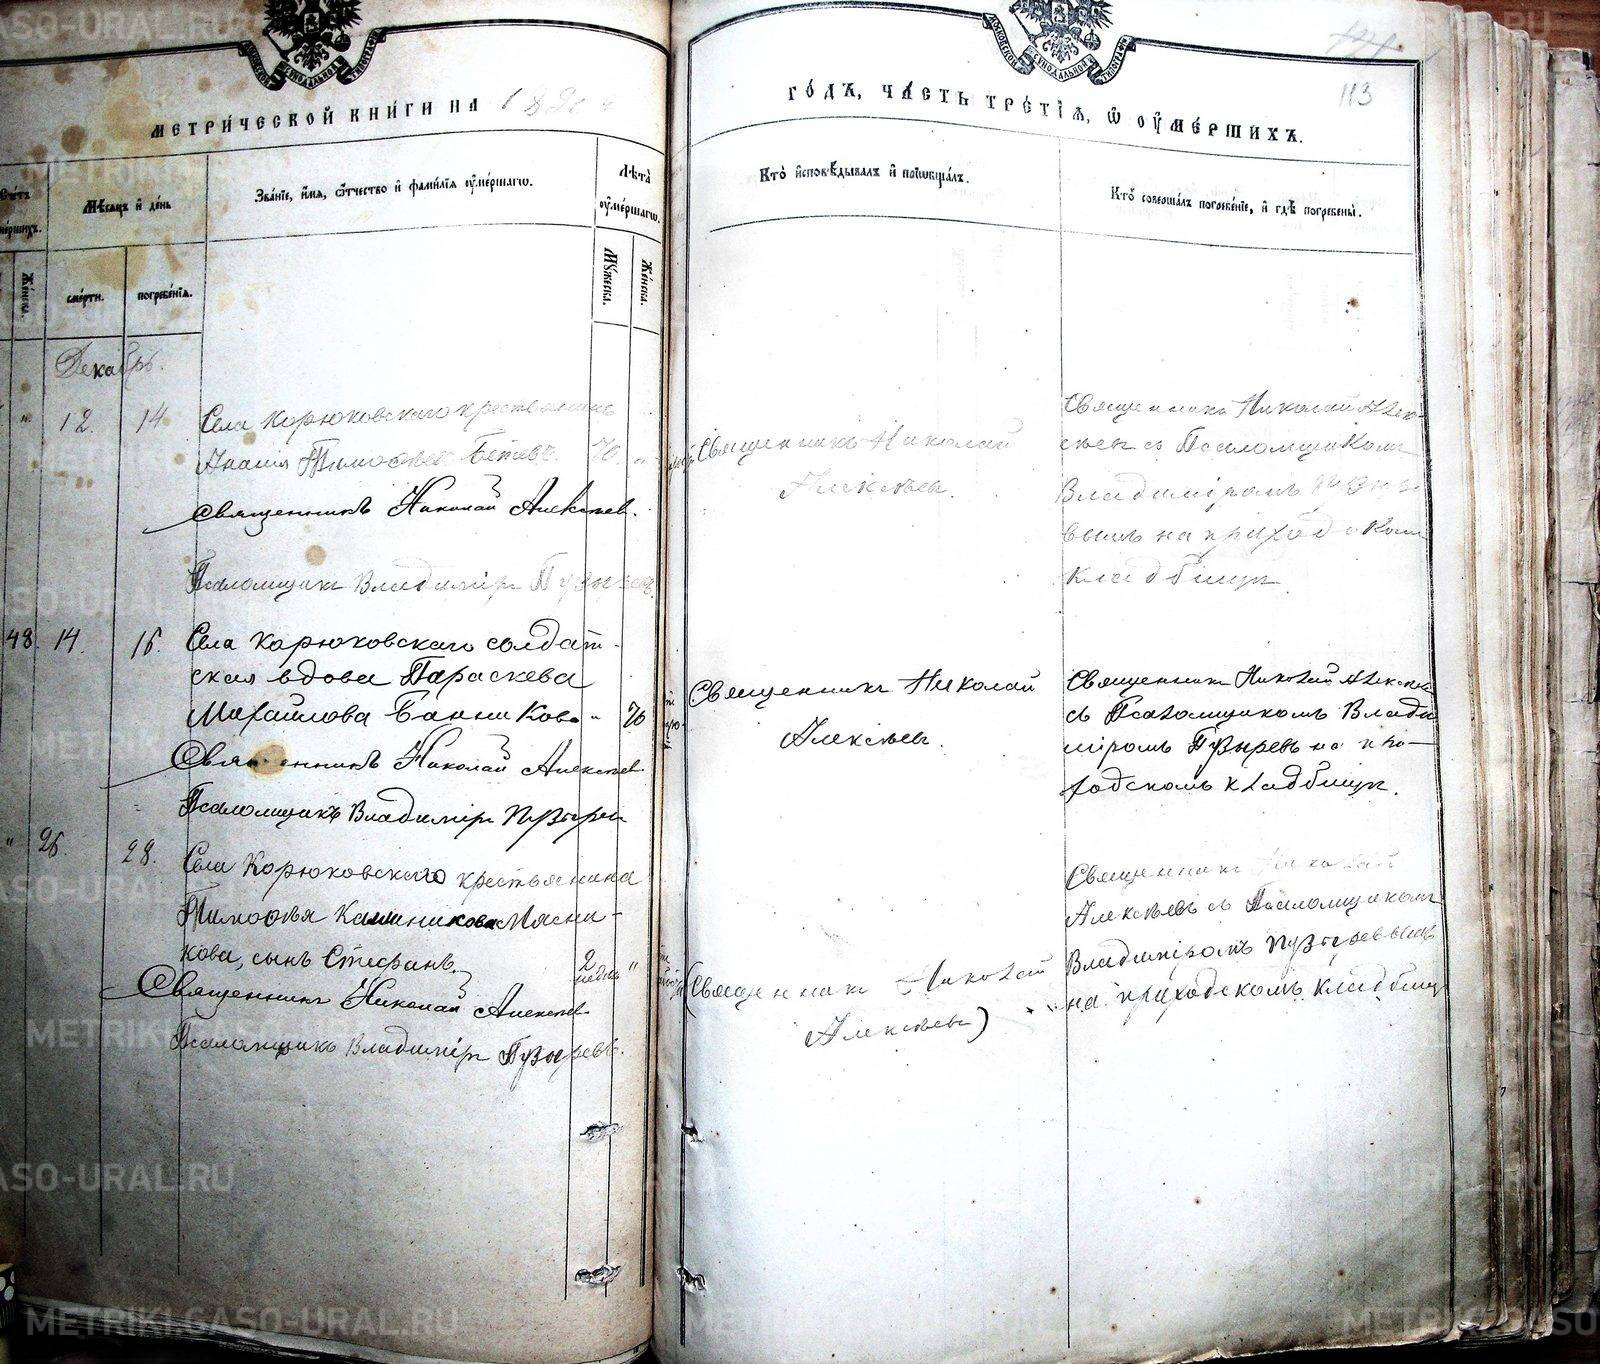 МЕТРИ́ЧЕСКОЙ КНИ́ГИ НА
ГО́ДЪ, ЧА́СТЬ ТРЕ́ТІѦ, Ѡ҆ ОУ҆МЕ́РШИХЪ.
113
Мѣсяцъ и день
Званіе, имя, отчество и фамилія оумершагѡ.
Лѣта оумершагѡ.
Кто исповѣдывалъ и пріобщалъ.
Кто совершалъ погребеніе, и гдѣ погребены.
Женска.
смерти.
погребенія.
Мужеска.
Женска.
Декабрь.
12. 14
Села Корюковскаго крестьянинъ
Ананія Тимоѳѣев 70.
Священникъ Николай Алексѣев.
Псаломщикъ Владиміръ Пузыревъ.
Священникъ Николай
Алексѣевъ.
Священникъ Николай Алек-
сѣевъ съ Псаломщикомъ
Владиміромъ Пузыре
вымъ на приходском
кладбищѣ.
48. 14. 16.
Села Корюковскаго солдат-
ская вдова Параскева
Михайлова Банникова " 70
Священникъ Николай Алексѣев.
Псаломщикъ Владиміръ Пузырев
Священникъ Николай
Алексѣевъ.
Священникъ Николай Алексѣев
съ Псаломщикомъ Влади
міромъ Пузыревъ на при-
ходскомъ кладбищѣ.
" 26. 28.
Села Корюковскаго крестьянина
Тимоѳѣя Мясни-
кова, сынъ Стефанъ. 2 недѣль "
Священникъ Николай Алексѣев
Псаломщикъ Владиміръ Пузыревъ.
Священникъ Николай
Алексѣевъ)
Священникъ Николай
Алексѣевъ съ Псаломщикомъ
Владиміромъ Пузыревымъ
на приходскомъ кладбищѣ
METRIKI.GASO-URAL.RU